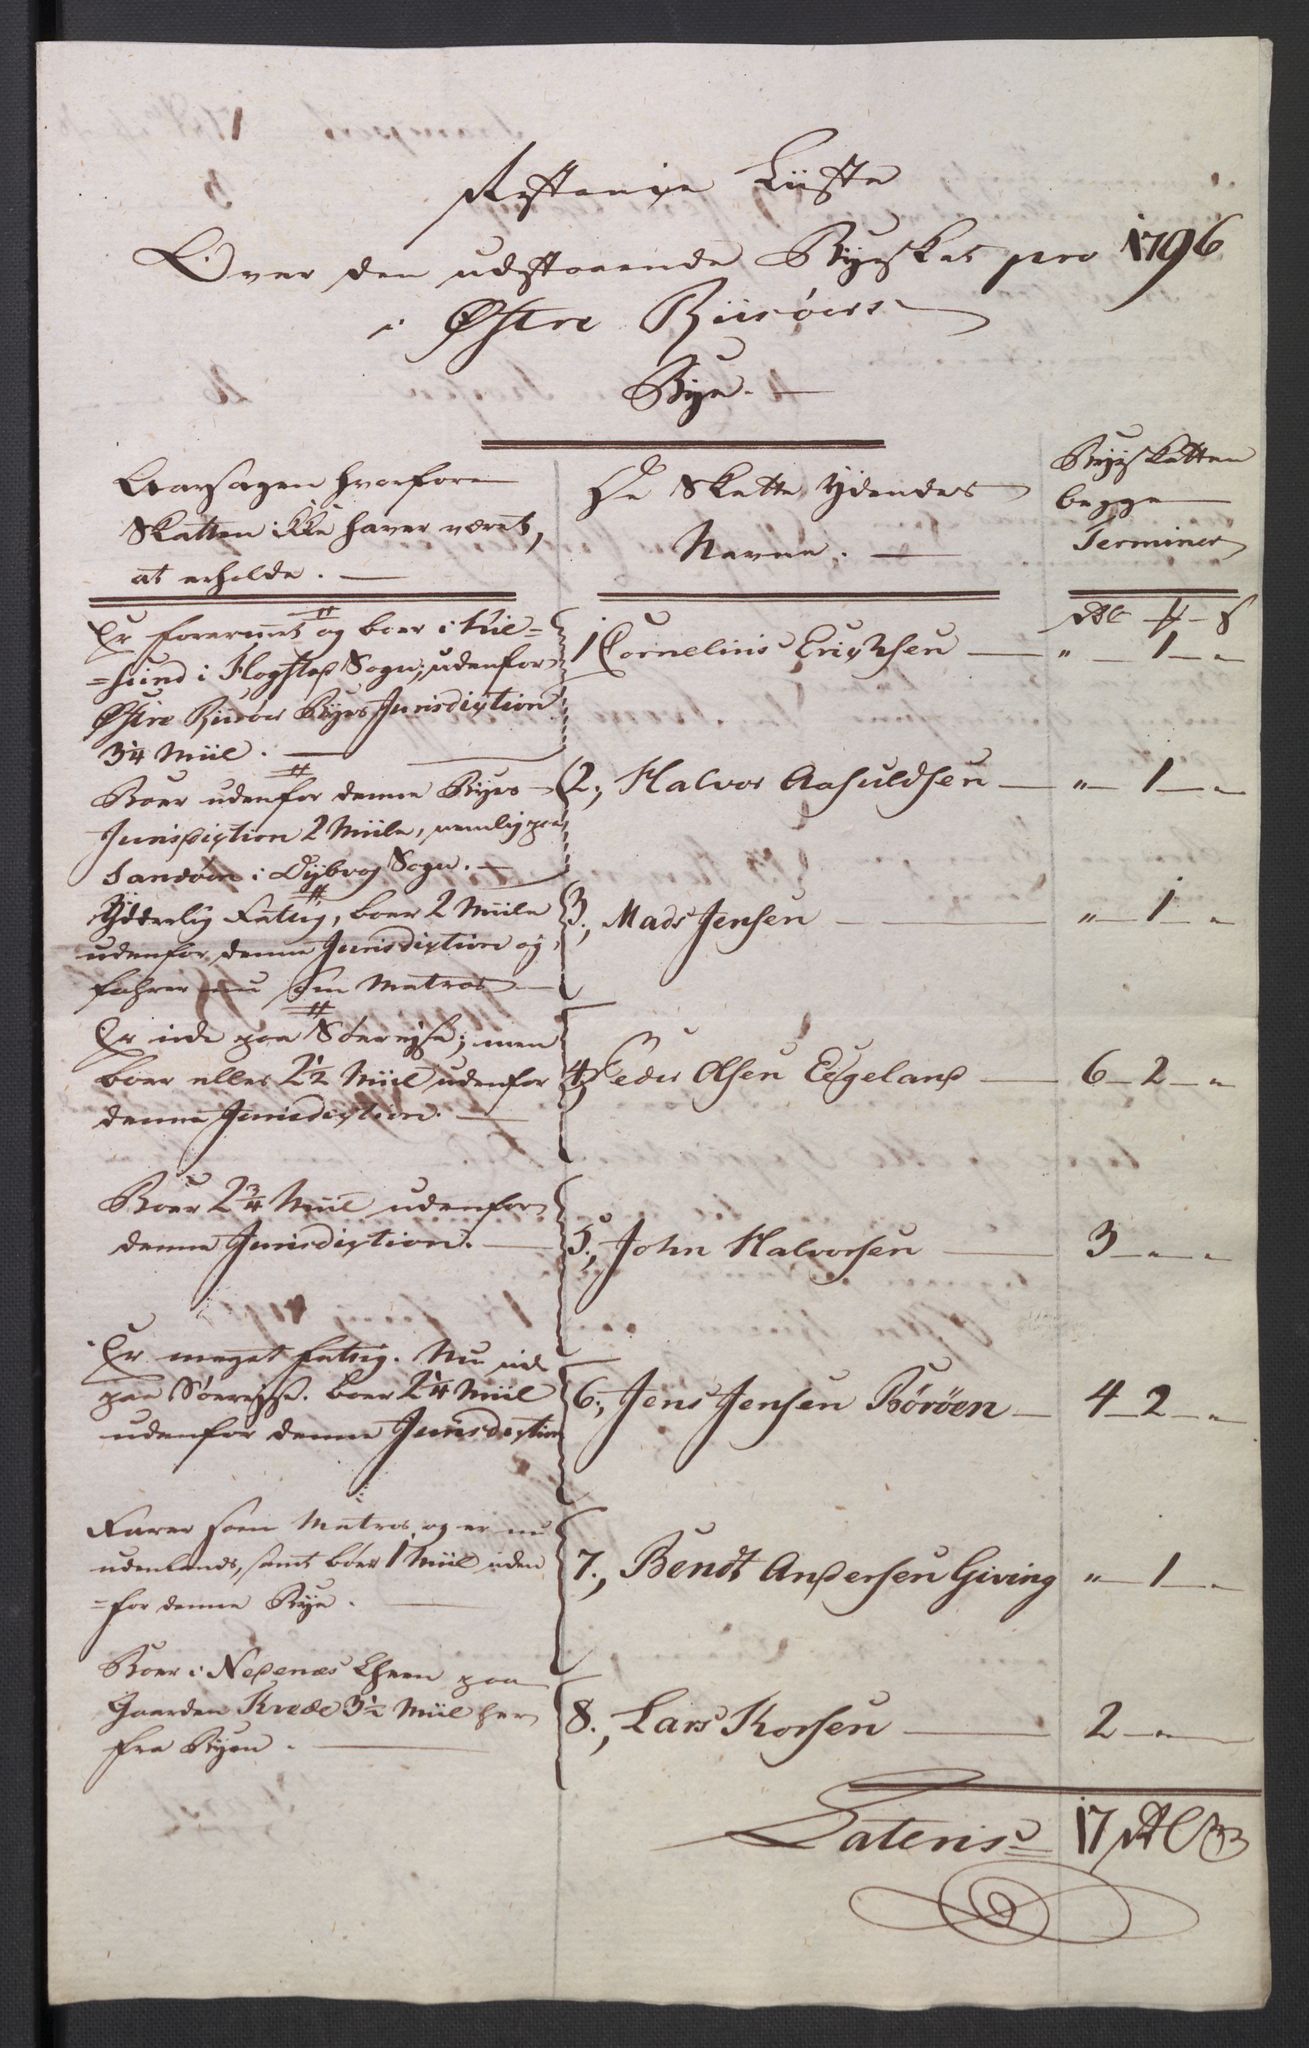 Restance Liiste
Over den udstaaende Byeskat pro 1796
i Østre Riisøers
Bye.
Aarsagen hvorfore
Skatten ikke haver været,
at erholde.
De Skatte Ydendes
Navne.
Byeskatten
begge
Terminer
Rdl ß
Er forarmet og boer i Kil-
=sund i Flogstad Sogn, udenfor
Østre Riisøer Byes Jurisdiction
3¼ Miil.
1 Cornelius Erichsen " 1 "
Boer udenfor denne Byes
Jurisdiction 2 Miile, nemlig paa
Sandøen i Dybvog Sogn.
2., Halvor Aasuldsen " 1 "
Yderlig Fattig, boer 2 Miile
udenfor denne Jurisdiction og
fahrer nu som Matros
3., Mads Jensen " 1 "
Er ude paa Søereyse; men
boer ellers 2½ Miil udenfor
denne Jurisdiction.
4., Peder Olsen Eegeland 6 2 "
Boer 2¾ Miil udenfor
denne Jurisdiction.
5., John Halvorsen 3 " "
Er meget fattig. Nu ude
paa Søereyse. boer 2¼ Miil
udenfor denne Jurisdiction
6., Jens Jensen Böröen 4 2 "
Farer som Matros og er nu
udenlands, samt boer 1 Miil uden
=for denne Bye.
7., Bendt Andersen Giving " 1 "
Boer i Nedenæs Lheen paa
Gaarden 3½ Miil her
fra Byen.
8., Lars Korsen 2 "
Lateris 17 Rdl